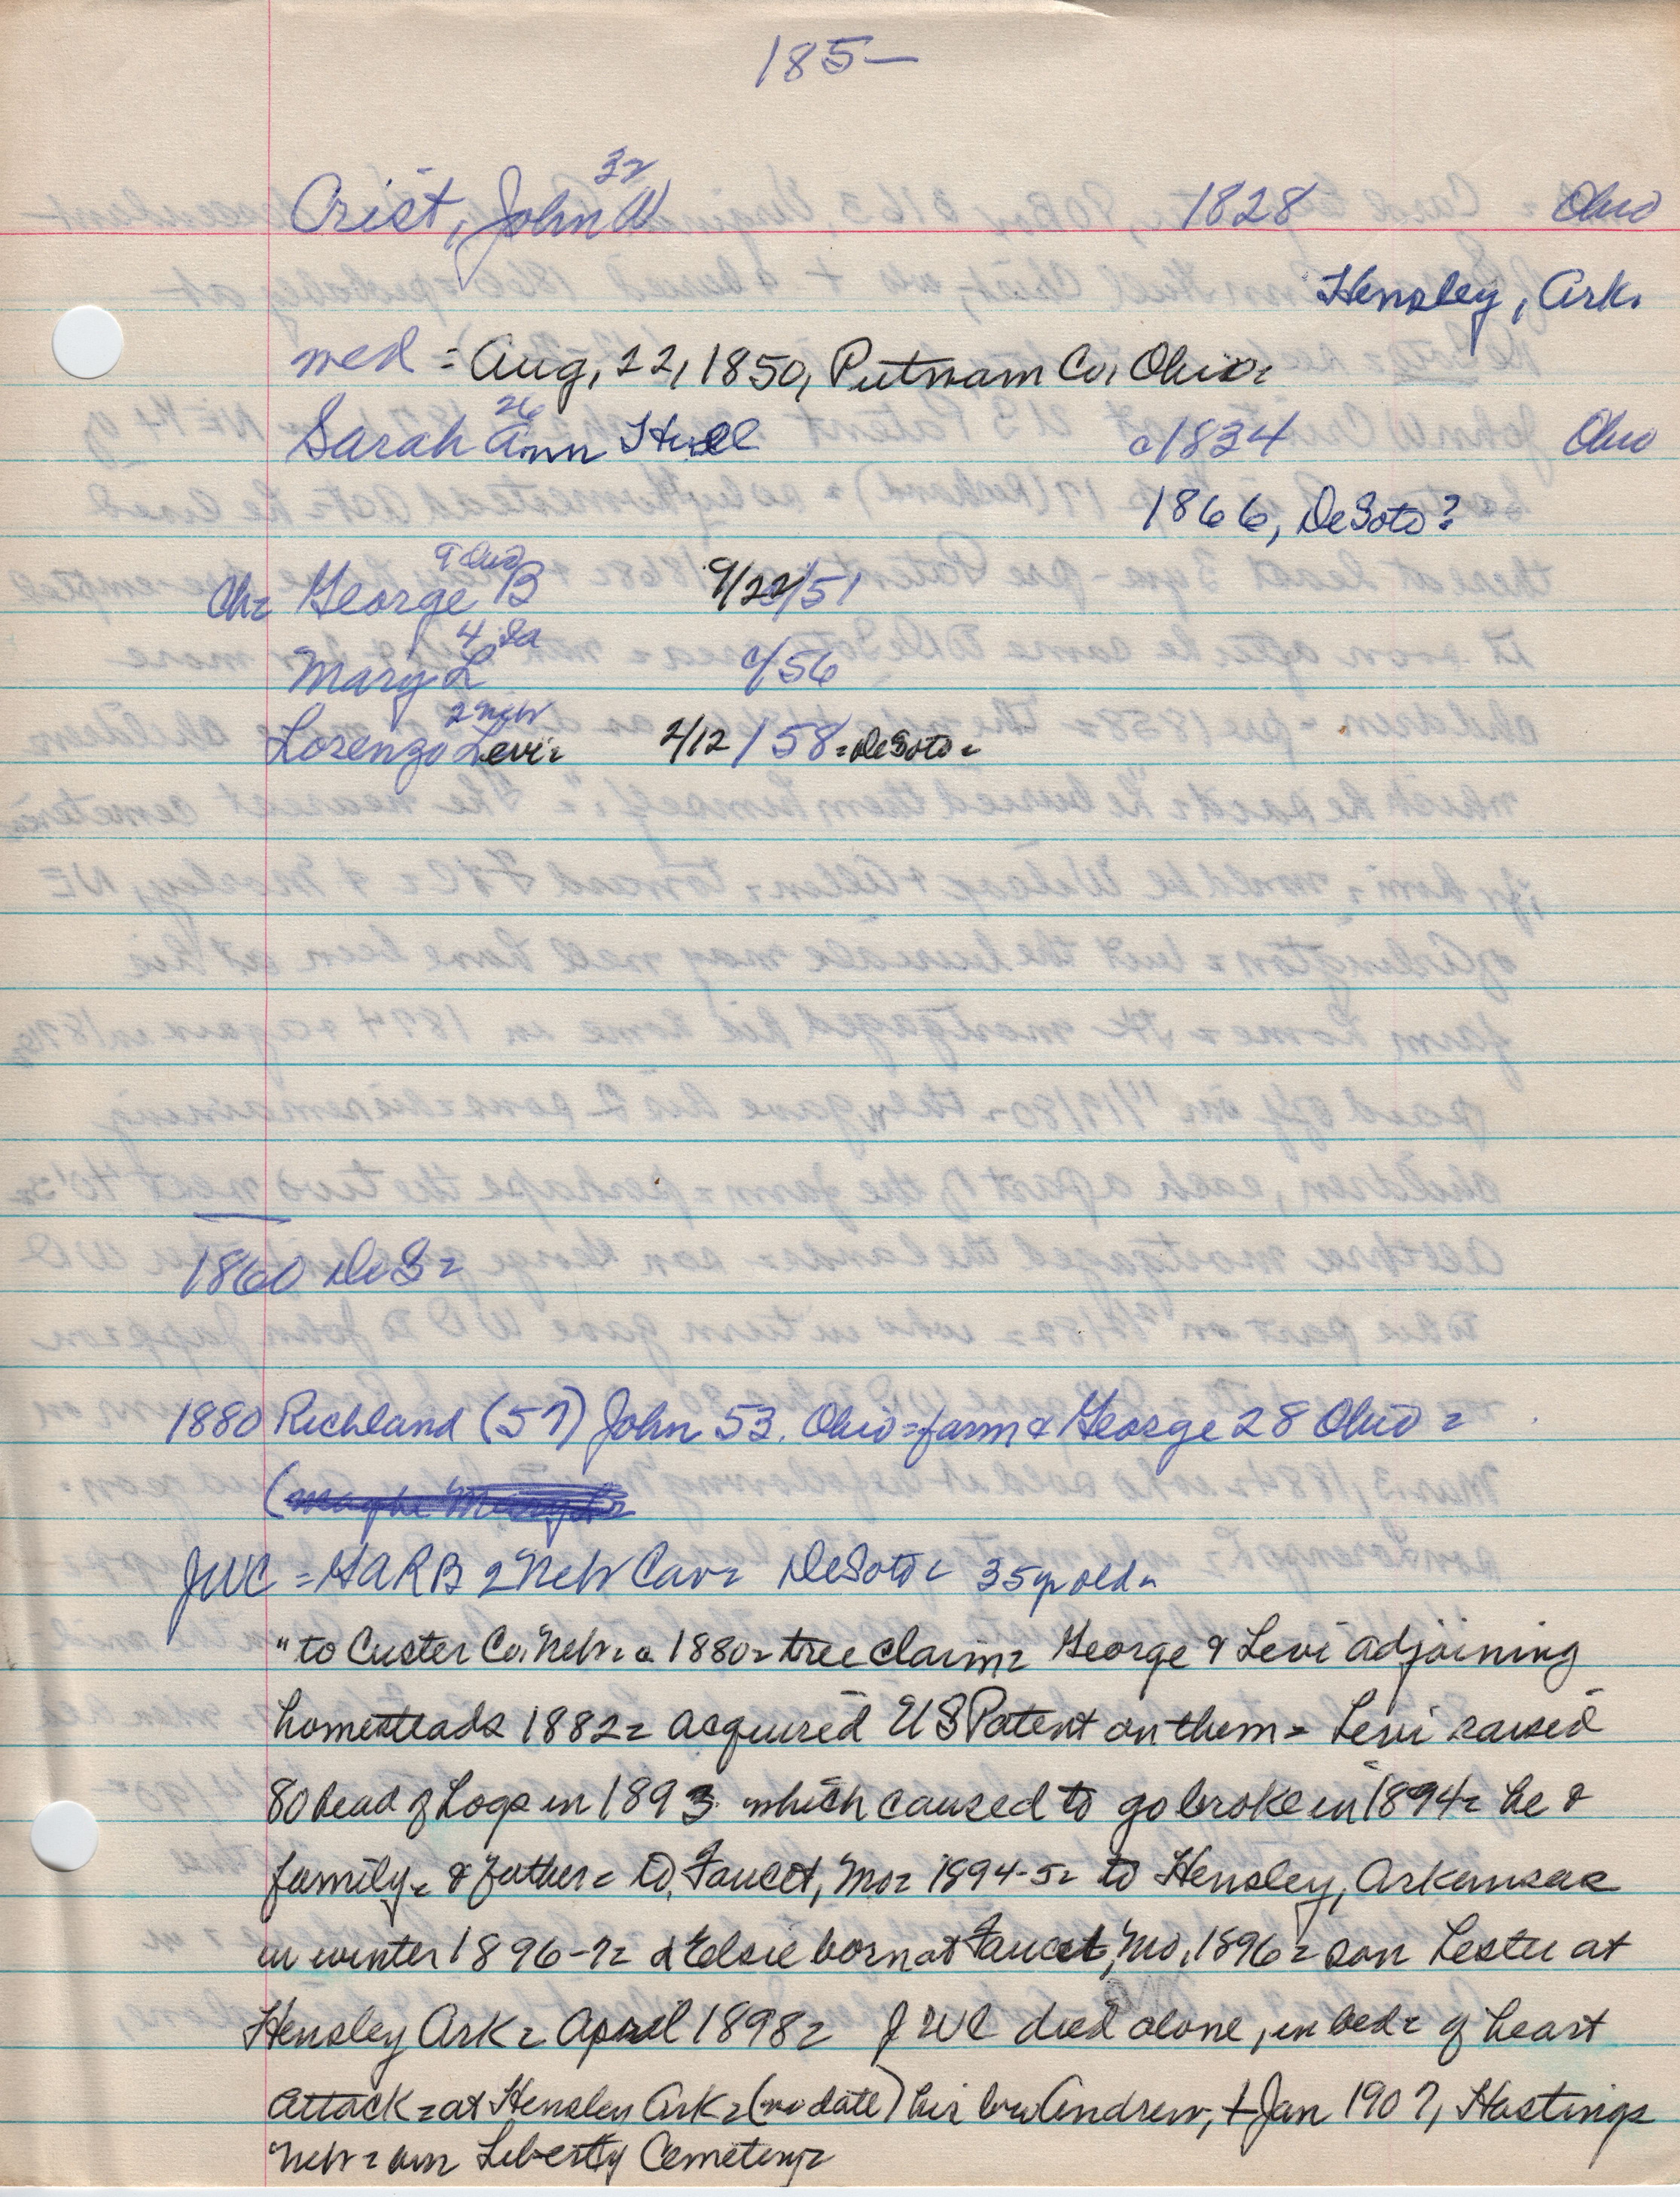 185-
32
Crist, John W 1828 Ohio
Hensley, Ark.
med = Aug, 22, 1850, Putnam Co, Ohio=
26
Sarah Ann Hull c1834 Ohio
1866, DeSoto?
9 Ohio
Ch= George B 9/22/51
4 Ia
Mary L c/56
2 Neb
Lorenzo Levi= 2/12/58=DeSoto=
1860 DeS=
1880 Richland (57) John 53. Ohio=farm & George 28 Ohio=
(maybe Mary
JWC = GAR B 2 Neb Cav= DeSoto= 35 yr old=
"to Custer Co. Neb= c 1880= tree claim= George & Levi adjoining
homesteads 1882= acquired US Patent on them= Levi raised
80 head of hogs in 1893 which caused to go broke in 1894= he &
family= & father= to Faucet, Mo= 1894-5= to Hensley, Arkansas
in winter 1896-7= d Elsie born at Faucet, Mo, 1896= son Lester at
Hensley Ark= April 1898= JWC died alone, in bed= of heart
attack=at Hensley Ark=(no date) his bro Andrew, + Jan 1907, Hastings
Neb= bur Liberty Cemetery=